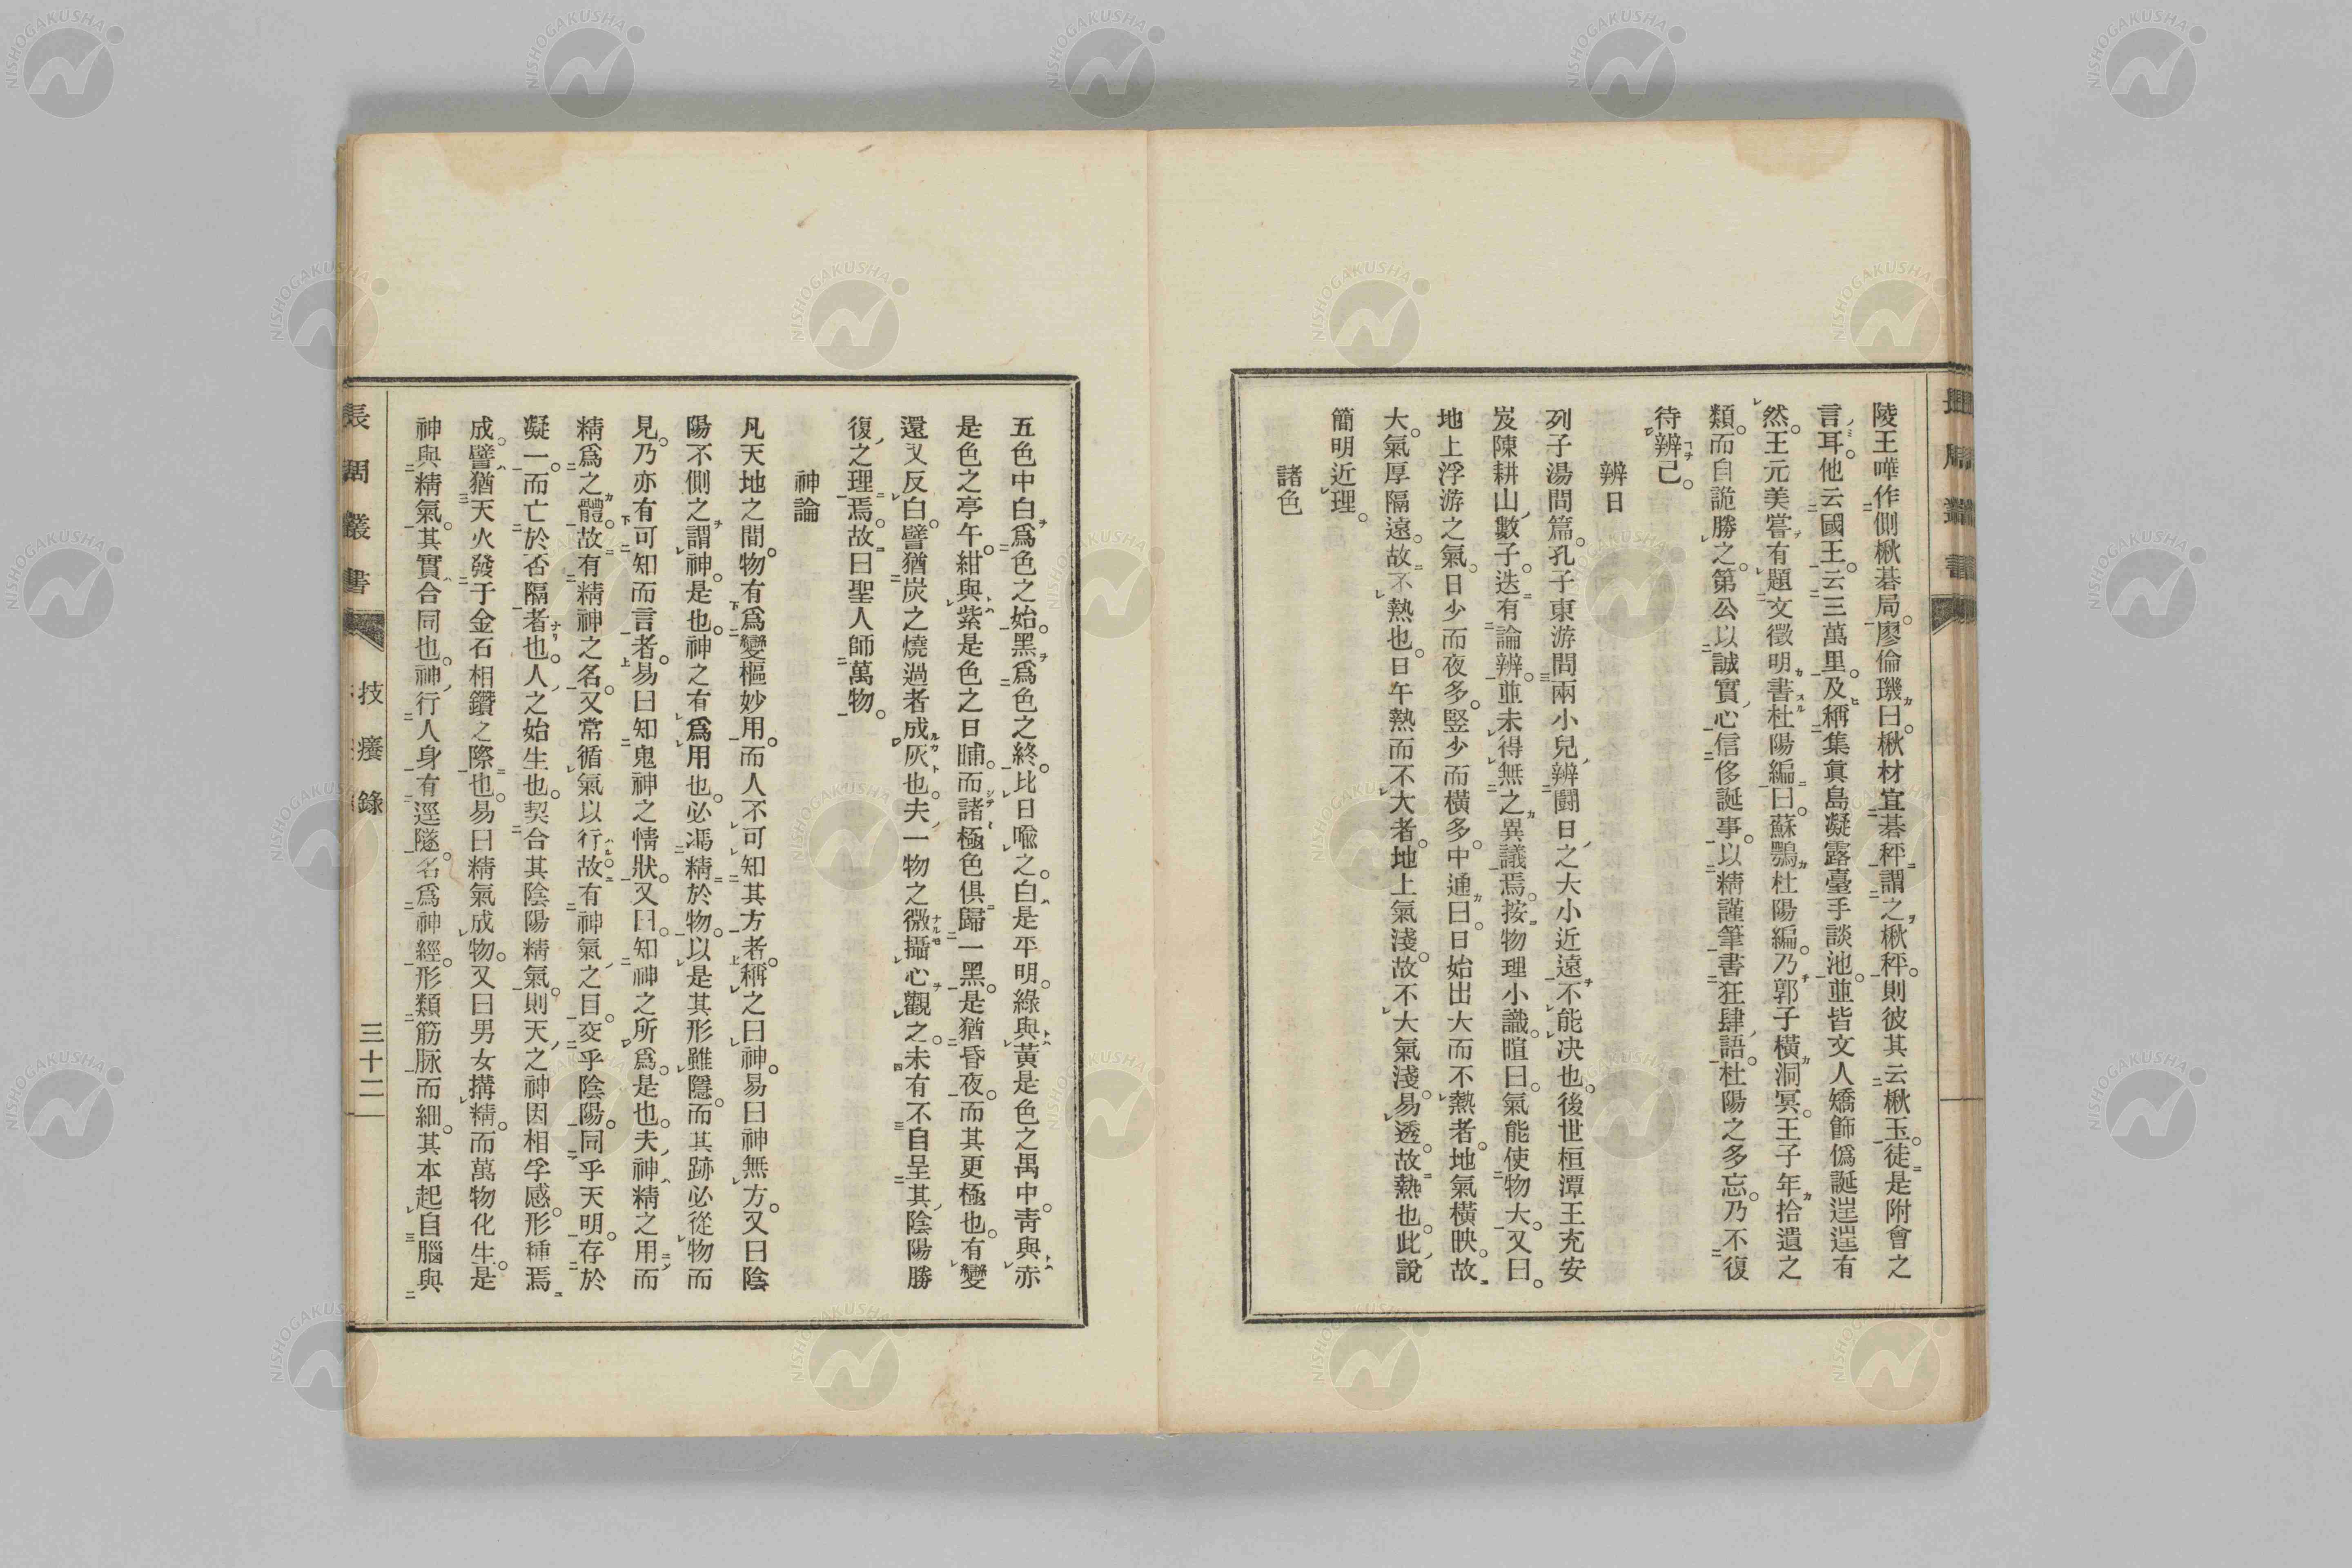 陵王曄作側楸碁局。廖倫璣曰。楸材宜碁秤謂之楸秤。則彼其云楸玉。徒是附會之
言耳。他云國王。云三萬里。及稱集眞島凝露臺手談池。並皆文人矯飾僞誕逞逞有
然。王元美嘗有題文徵明書杜陽編曰。蘇鶚杜陽編。乃郭子横洞冥。王子年拾遺之
類。而自詭勝之。第公以誠實心信侈誕事。以精謹筆書狂肆語。杜陽之多忘。乃不復
待辨已。
辨日
列子湯問篇。孔子東游問兩小兒辨鬪日之大小近遠不能决也。後世桓潭王充安
岌陳耕山數子。迭有論辨。並未得無之異議焉。按物理小識。暄曰。氣能使物大。又曰。
地上浮游之氣。日少而夜多。竪少而横多。中通曰。日始出大而不熱者。地氣横映。故
大。氣厚隔遠。故不熱也。日午熱而不大者。地上氣淺。故不大氣淺。易透。故熱也。此說
簡明近理。
諸色
五色中白爲色之始。黑爲色之終。比日喩之。白是平明。綠與黃是色之禺中。靑與赤
是色之亭午。紺與紫是色之日晡。而諸極色俱歸一黑。是猶昏夜。而其更極也。有變
還又反白。譬猶炭之燒過者成灰也。夫一物之微攝心觀之。未有不自呈其陰陽勝
復之理焉。故曰聖人師萬物。
神論
凡天地之間。物有爲變樞妙用。而人不可知其方者。稱之曰神。易曰神無方。又曰陰
陽不側之謂神。是也。神之有爲用也。必馮精於物。以是其形雖隱。而其跡必從物而
見。乃亦有可知而言者。易曰知鬼神之情狀。又曰。知神之所爲。是也。夫神精之用而
精爲之體。故有精神之名。又常循氣以行。故有神氣之目。交乎陰陽。同乎天明。存於
凝一。而亡於否隔者也。人之始生也。契合其陰陽精氣。則天之神因相孚感。形種焉
成。譬猶天火發于金石相鑽之際也。易曰精氣成物。又曰男女搆精。而萬物化生。是
神與精氣。其實合同也。神行人身有逕隧。名爲神經。形類筋脉而細。其本起自腦與
技癢錄
三十二